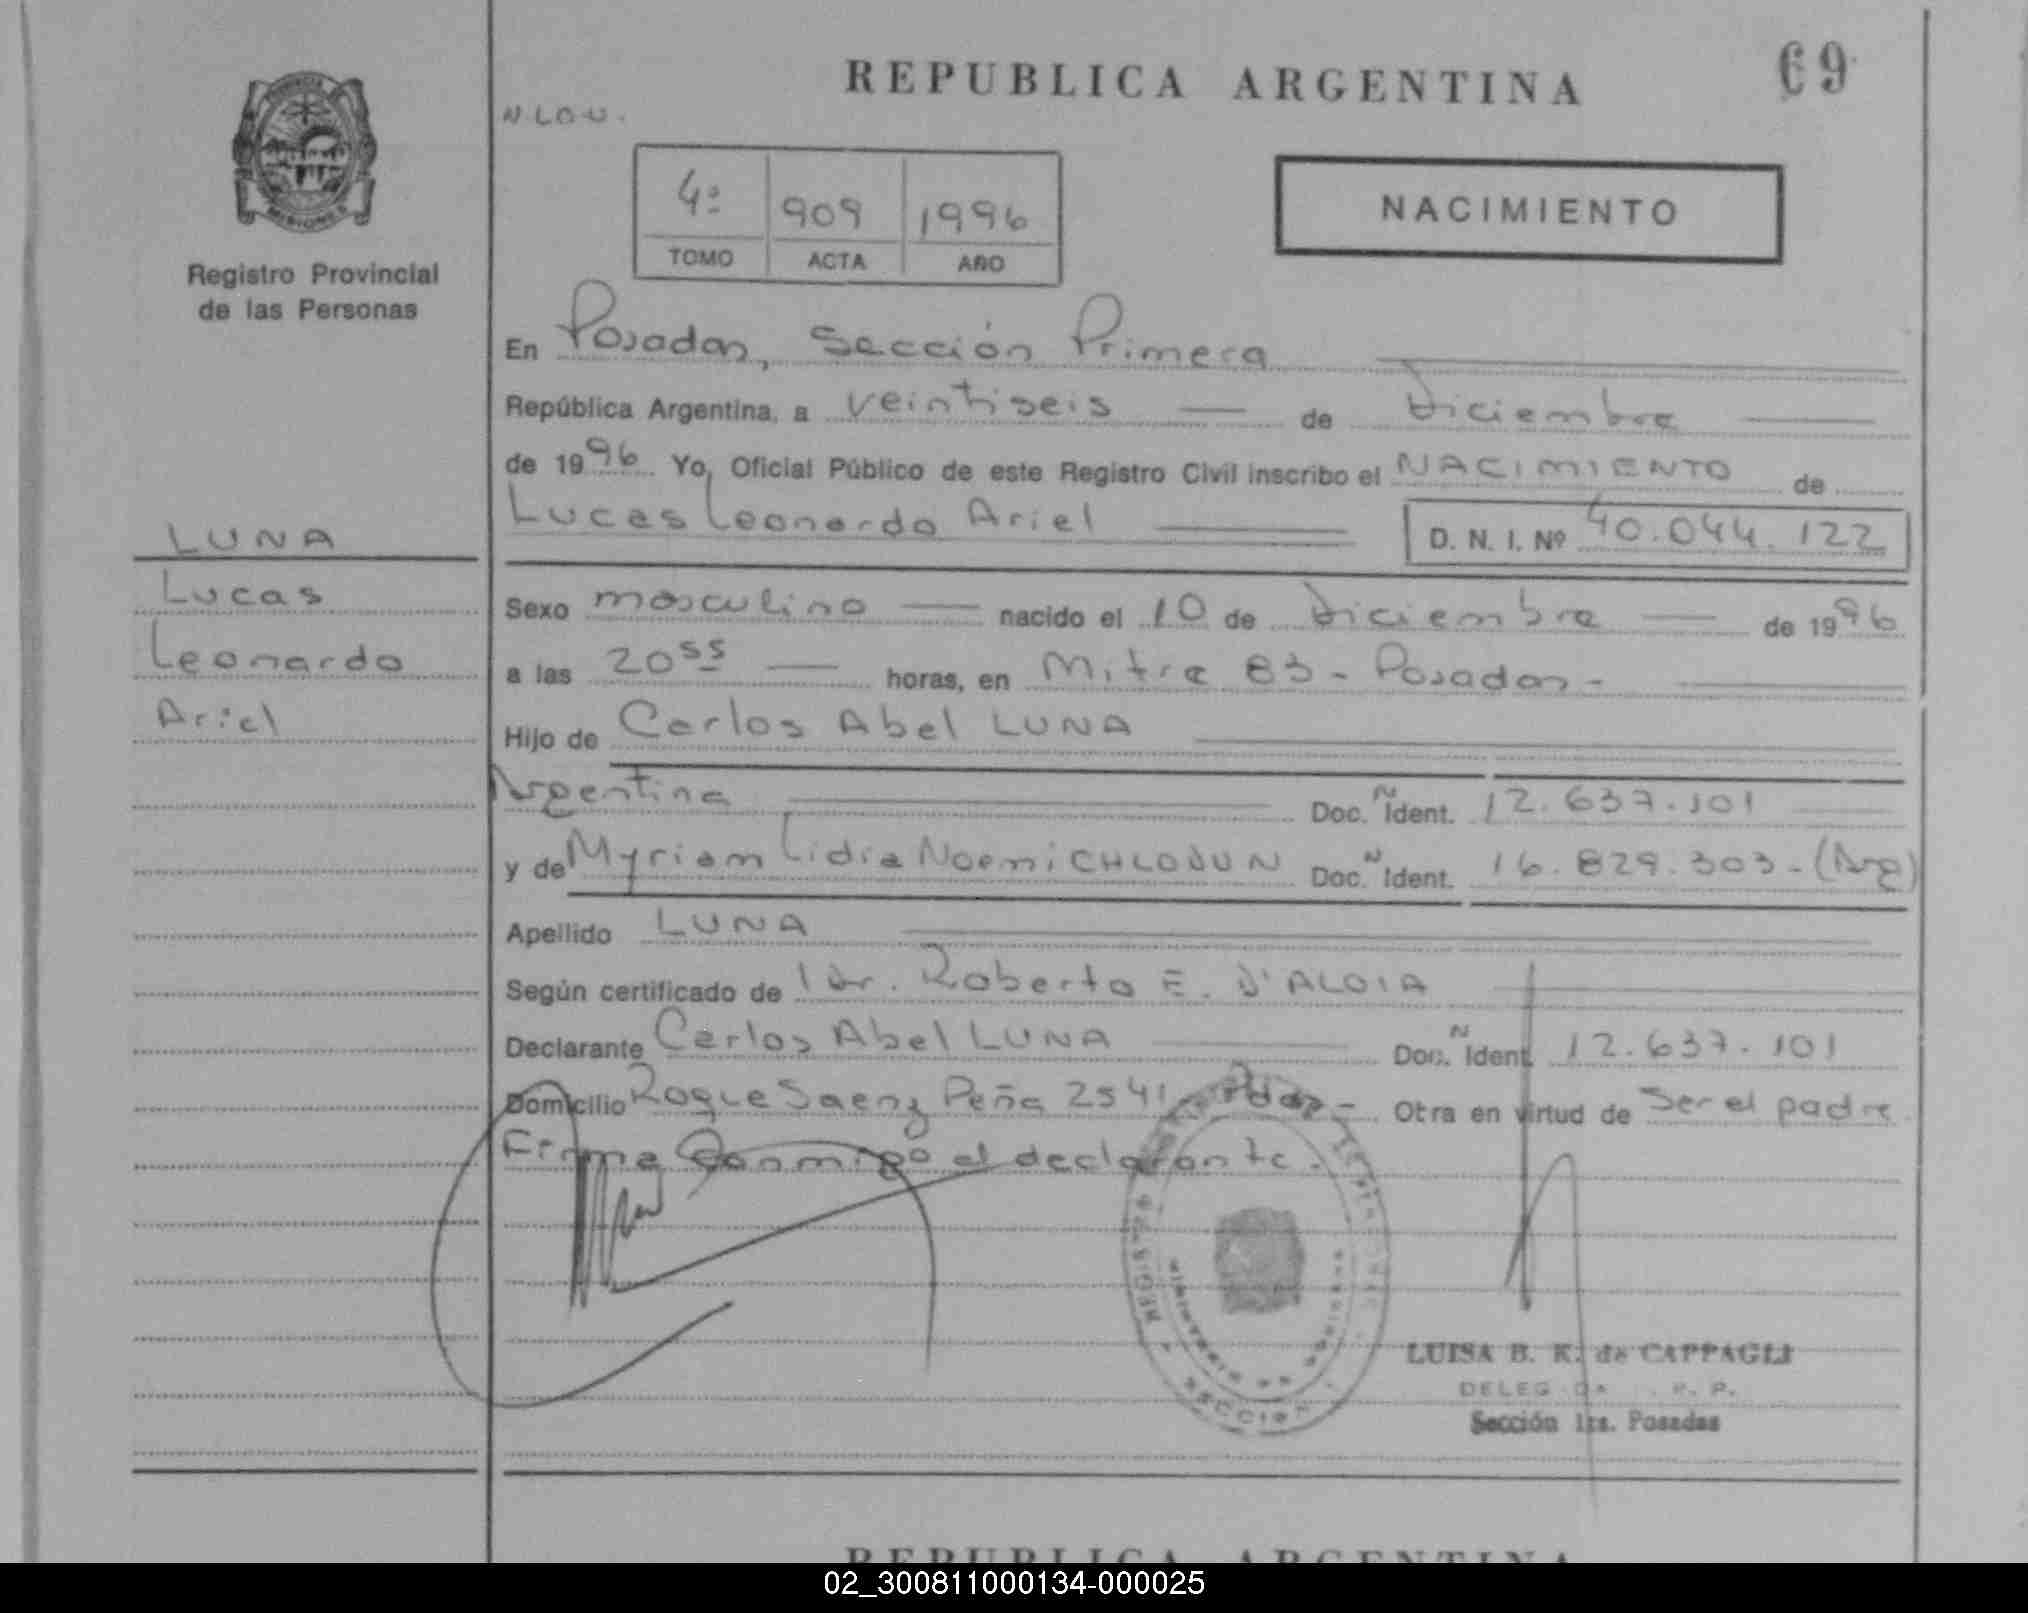 REPUBLICA ARGENTINA
69
N.LO.U.
4º 909 1996
TOMO ACTA AÑO
NACIMIENTO
MISIONES
Registro Provincial
de las Personas
En Posadas, Sección Primera
República Argentina, a veintiseis de Diciembre
de 1996 Yo, Oficial Público de este Registro Civil inscribo el NACIMIENTO de
Lucas Leonardo Ariel D. N. I. Nº 40.044.122
LUNA
Lucas
Leonardo
Ariel
Sexo masculino nacido el 10 de Diciembre de 1996
a las 20 55 horas, en Mitre 83 - Posadas -
Hijo de Carlos Abel LUNA
Argentina Doc. N Ident. 12.637.101
y de Myriam Lidia Noemi CHLODUN Doc. N Ident. 16.829.303 - (Arg)
Apellido LUNA
Según certificado de Dr. Roberto E. D'ALOIA
Declarante Carlos Abel LUNA Doc. N Ident. 12.637.101
Domicilio Roque Saenz Peña 2541 - Pdas - Otra en virtud de Ser el padre
Firma conmigo el declarante.
LUISA B. K. de CAPPAGLI
Sección 1ra. Posadas
REPUBLICA ARGENTINA
02_300811000134-000025